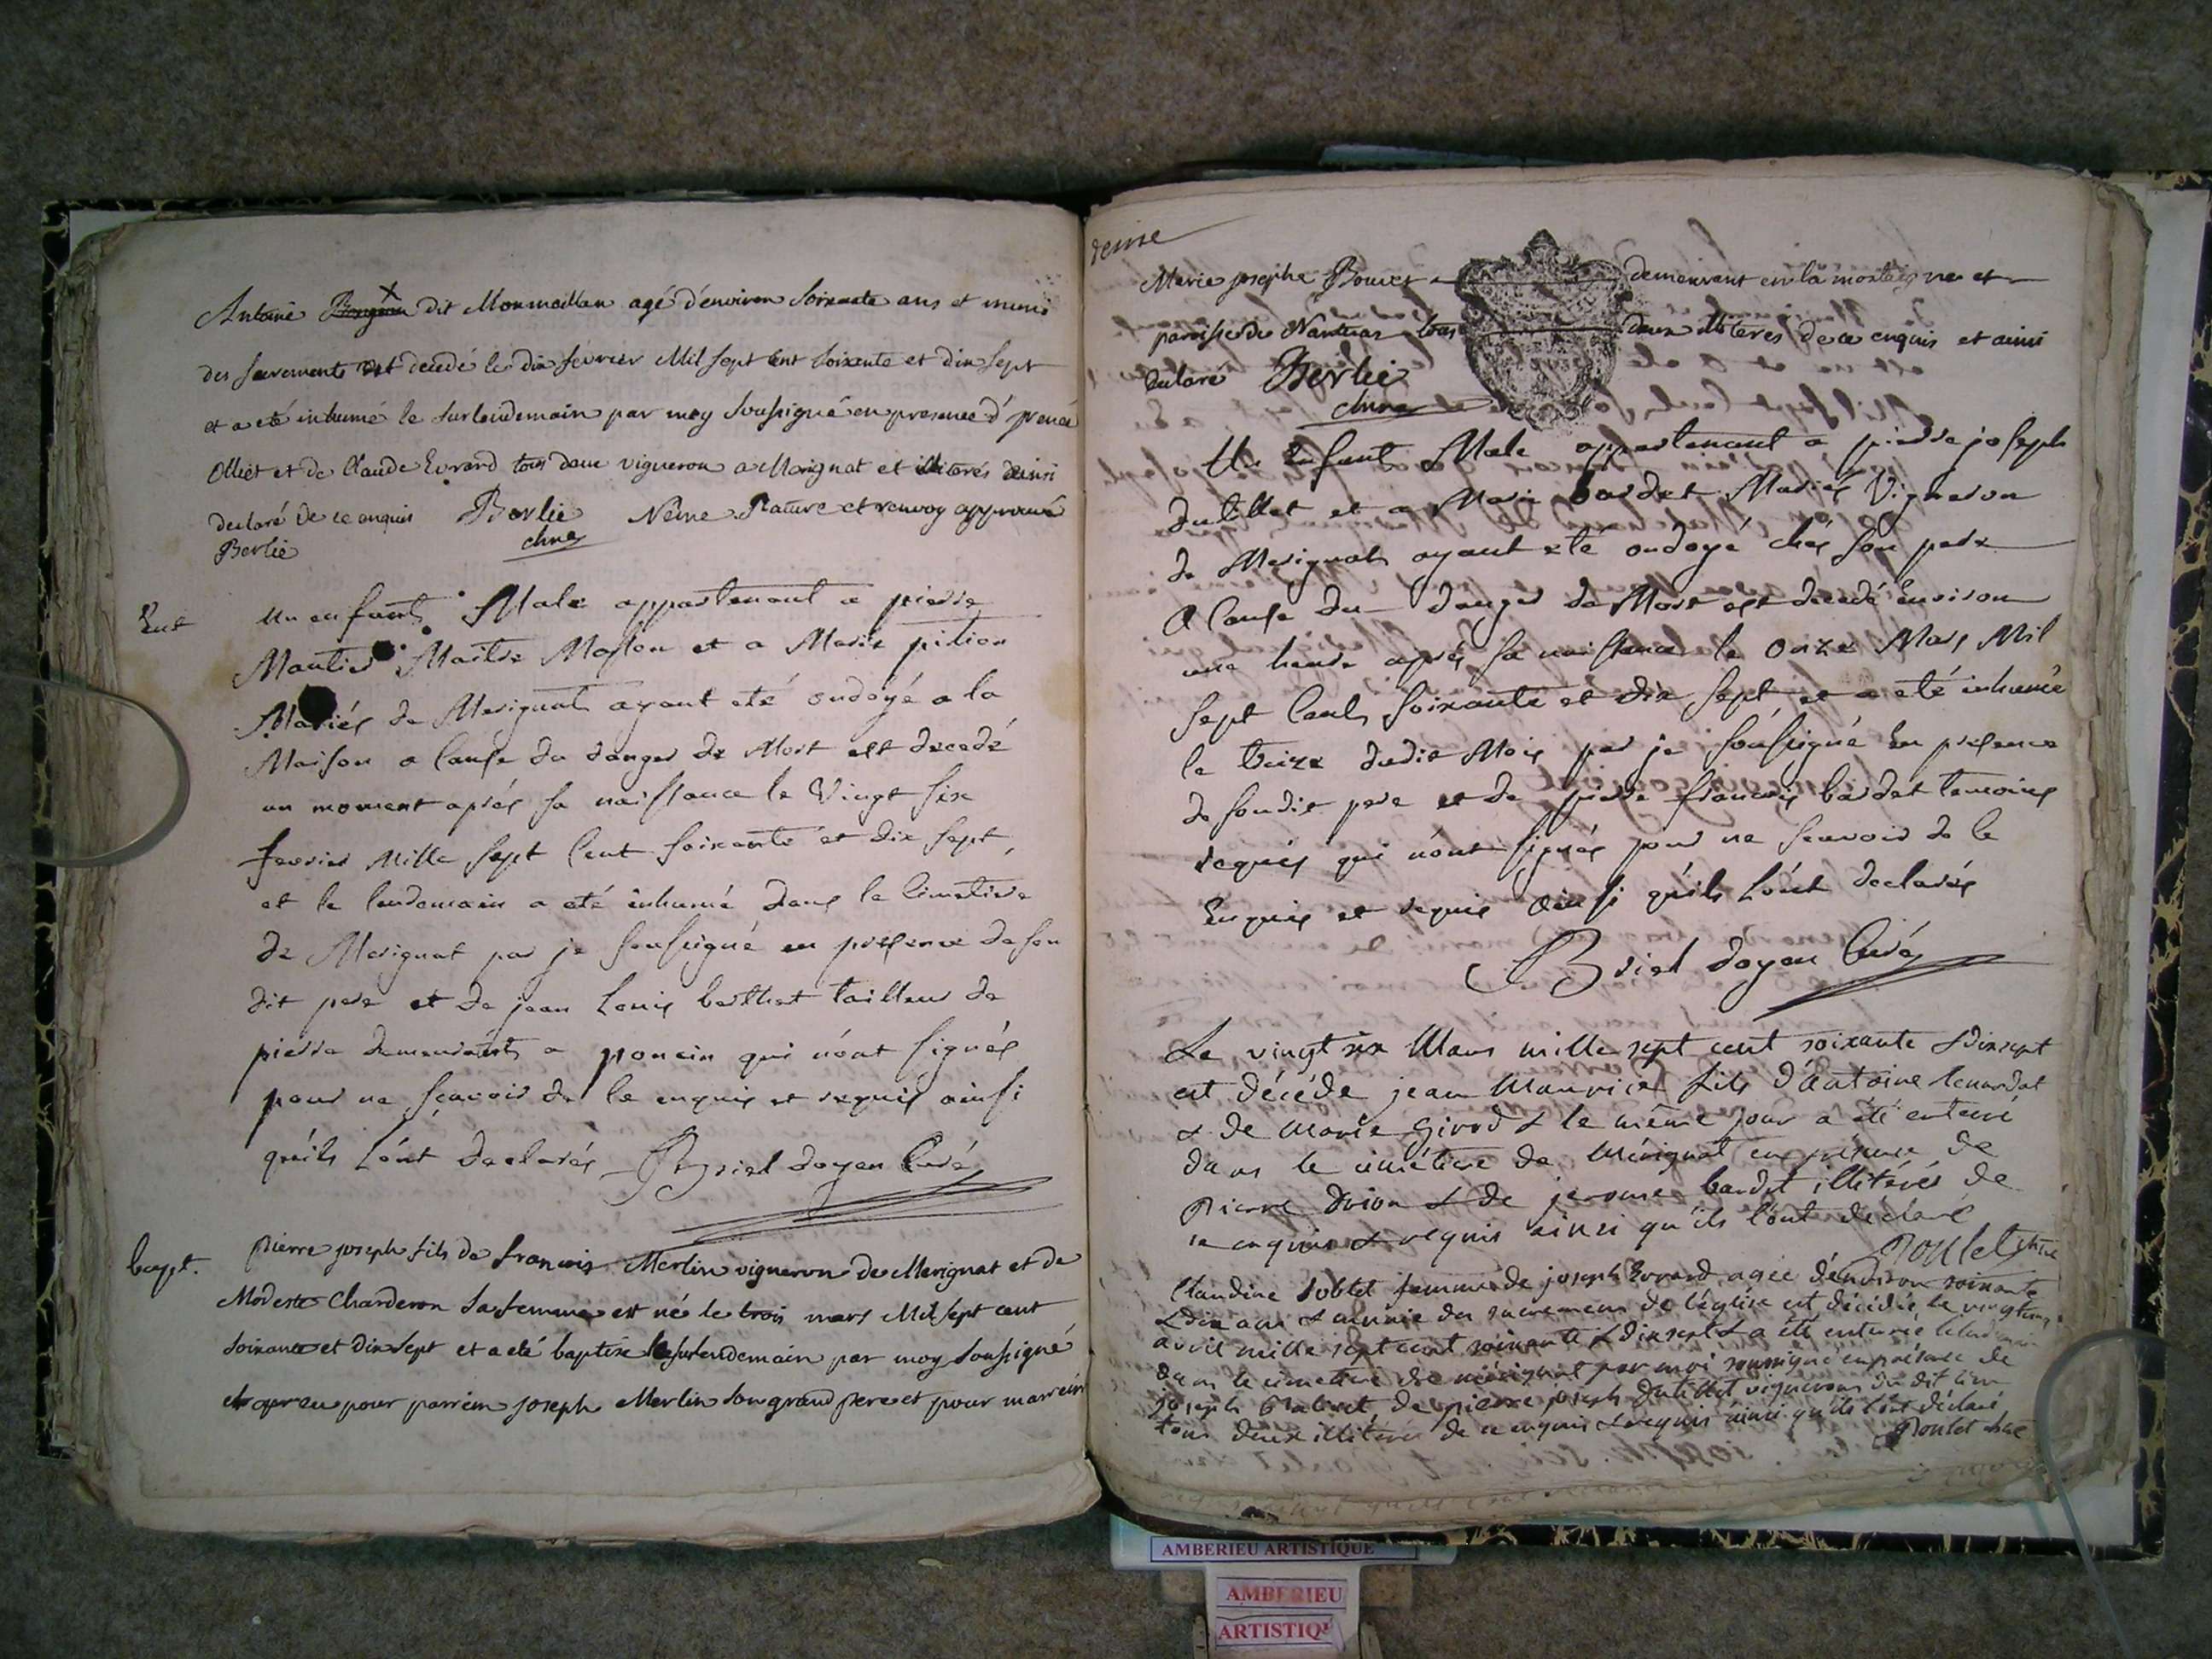 Antoine dit Monmaillan agé d'environ soixante ans et munis
des sacrements est decedé le dix fevrier Mil sept cent soixante et dix sept
et a eté inhumé le surlendemain par moy soussigné en presence d'
Olliet et de Claude Evrard tous deux vigneron a Merignat et illiterés ainsi
declaré de ce enquis Berlié Nême Rature et renvoy approuvé
Berlié
Ent un enfant Male appartenant a pierre
Mantier Maitre Masson et a Marie pition
Mariés de Merignat ayant eté ondoyé a la
Maison a cause du danger de Mort est decedé
un moment aprés sa naissance le Vingt six
fevrier Mille sept Cent soixante et dix sept,
et le lendemain a eté inhumé dans le Cimetiere
de Merignat par je soussigné en presence de son
dit pere et de jean Louis berthet tailleur de
pierre demeurants a poncin qui n'ont signés
pour ne sçavoir de le enquis et requis ainsi
qu'ils l'ont declarés Briel doyen Curé
bapt. pierre joseph fils de francois Merlin vigneron de Merignat et de
Modeste Charderon sa femme est né le trois mars Mil sept cent
soixante et dix sept et a eté baptisé le surlendemain par moy soussigné
et a eu pour parrein joseph Merlin son grand pere et pour marreine
Marie josephe Bouvet demeurant en la montaigne et
paroisse de Nantuas tous deux illiteres de ce enquis et ainsi
declaré Berlié
Un Enfant Male appartenant a pierre joseph
dutillet et a Marie bardet Mariés Vigneron
de Merignat ayant eté ondoyé chés son pere
a Cause du danger de Mort est decedé Environ
une heure aprés sa naissance le onze Mars Mil
sept Cents soixante et dix sept, et a eté inhumé
le treize dudit Mois par je soussigné En presence
de sondit pere et de pierre francois bardet temoins
requis qui n'ont signés pour ne scavoir de le
Enquis et requis ainsi qu'ils l'ont declarés
Briel doyen Curé
Le vingt six Mars mille sept cent soixante & dix sept
est décédé jean Maurice fils d'Antoine
& de Marie Girod & le même jour a été enterré
dans le cimétiere de Mérignat en présence de
Pierre & de jerome bardet illitérés de
ce enquis & requis ainsi qu'ils l'ont déclaré
Poulet
Claudine femme de joseph Evrard agée d'environ soixante
& dix ans & munie des sacremens de l'église est décédée le
avril mille sept cent soixante & dix sept & a été enterrée le lendemain
dans le cimetiere de mérignat par moi soussigné en présence de
joseph & de pierre joseph dutillet vignerons du dit lieu
tous deux illitérés de ce enquis & requis ainsi qu'ils l'ont déclaré
Poulet
AMBERIEU ARTISTIQUE
AMBERIEU
ARTISTIQ